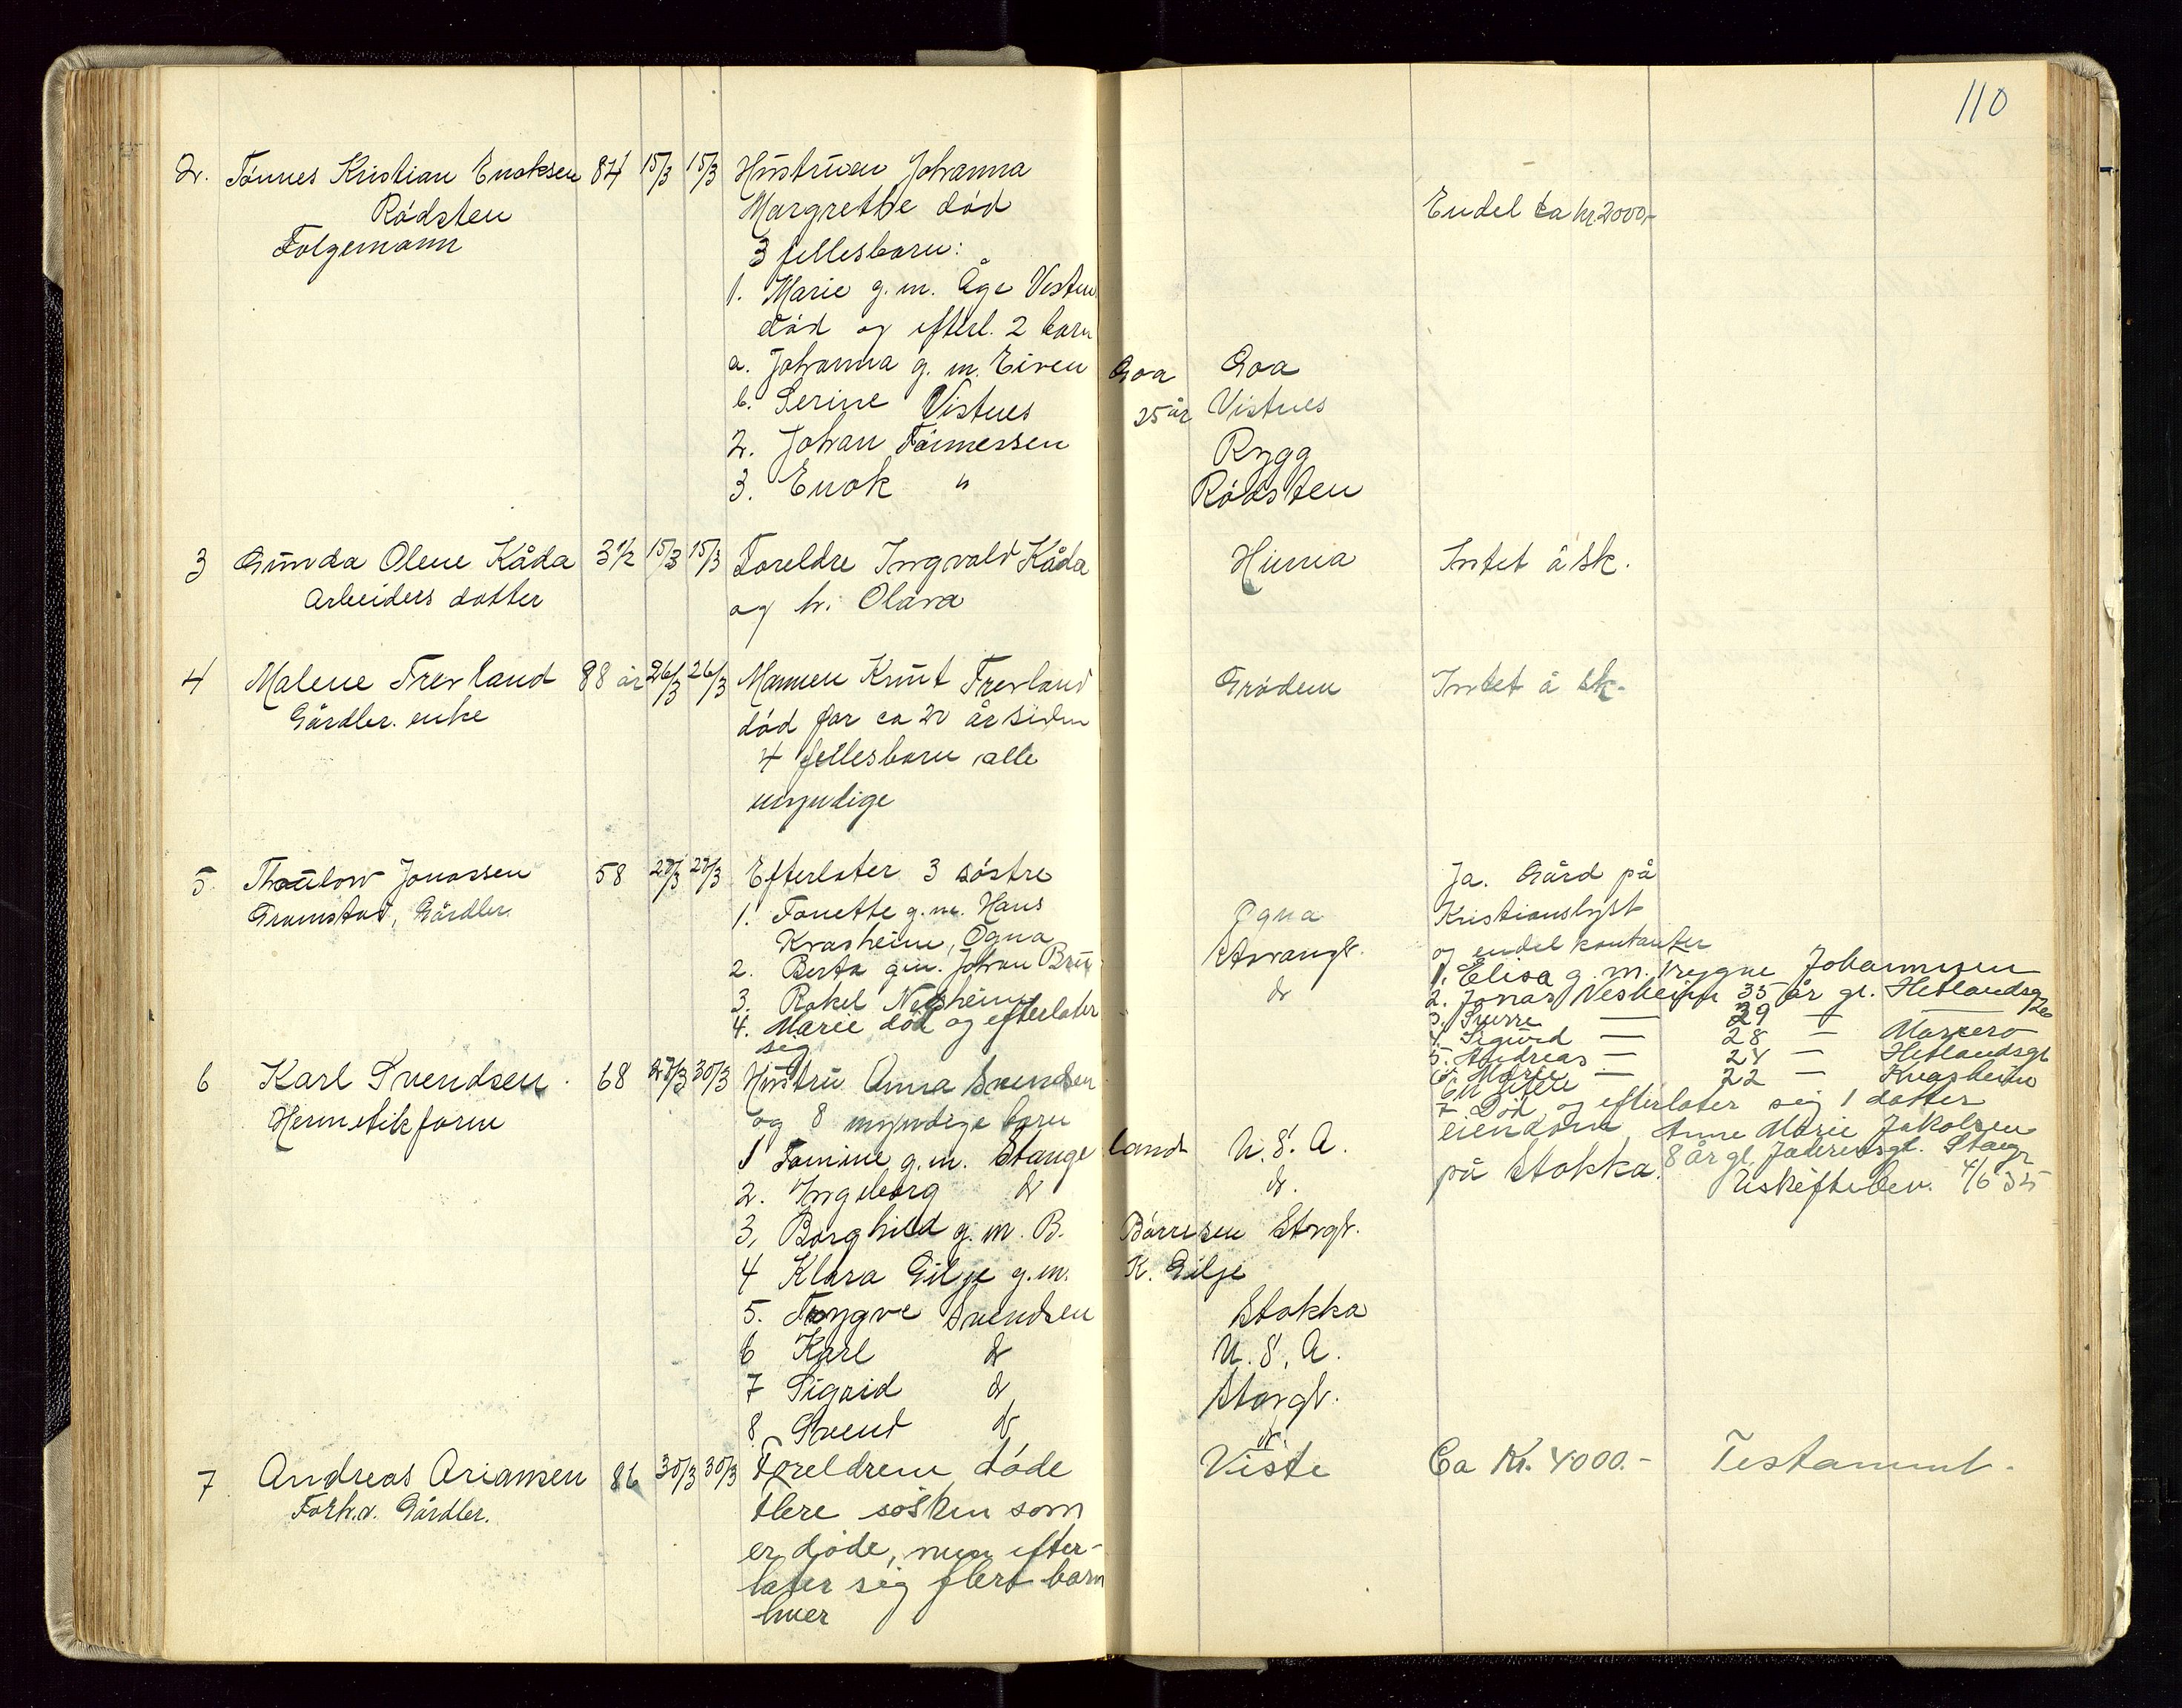 110
2. Tönnes Kristian Enoksen 84 15/3 15/3 Hustruen Johanna
Rödsten Margrethe död Endel ca kr. 2000,-
Folgemann 3 fellesbarn:
1. Marie g. m. Åge Vistnes
död og efterl. 2 barn
a. Johanna g. m. Eiven Goa Goa
b. Serine Vistnes 25 år Vistnes
2. Johan Tönnessen Rygg
3. Enok " Rödsten
3 Gunda Olene Kåda 3 1/2 15/3 15/3 Foreldre Ingvald Kåda Hinna Intet å sk.
Arbeiders datter og h. Olava
4 Malene Trevland 88 år 26/3 26/3 Mannen Knut Trevland Grödem Intet å sk.
Gårdbr. enke död for ca 20 år siden
4 fellesbarn alle
myndige
5. Thaulow Jonassen 58 Efterlater 3 söstre Ja. Gård på
Gramstad, Gårdbr. 1. Tonette g. m. Hans Ogna Kristianslyst
Kvasheim, Ogna og endel kontanter
2. Berta g.m. Johan Stavangr.
3. Rakel Nesheim dr
4. Marie död og efterlater
sig
1. Elisa g. m. Trygve Johannesen
2. Jonas Nesheim 35 år gl. Hetlandsg
3. Sverre — 29 —
4. Sigurd — 28 —
5. Andreas — 24 — Hetlandsgt
6. Marie — 22 — Kvasheim
7. Död og efterlater sig 1 datter
Anne Marie Jakobsen
8 år gl. Jaderensgt. Stavgr
Uskifteben. 4/6 35
6 Karl Svendsen 68 27/3 30/3 Hustru Anna Svendsen En liten
Hermetikform og 8 myndige barn eiendom
1 Tomine g. m. Stangeland U. S. A. på Stokka.
2. Ingeborg dr dr.
3, Borghild g. m. B. Börresen Stvgr.
4 Klara Gilje g. m. K. Gilje
5. Trygve Svendsen Stokka
6 Karl dr U. S. A.
7 Sigvid dr Stavgr.
8. Svend dr dr
7. Andreas Ariansen 86 30/3 30/3 Foreldrene döde Viste Ca Kr. 4000.- Testament.
Forh.v. Gårdbr. flere sösken som
er döde, men efter-
later sig flere barn
hver